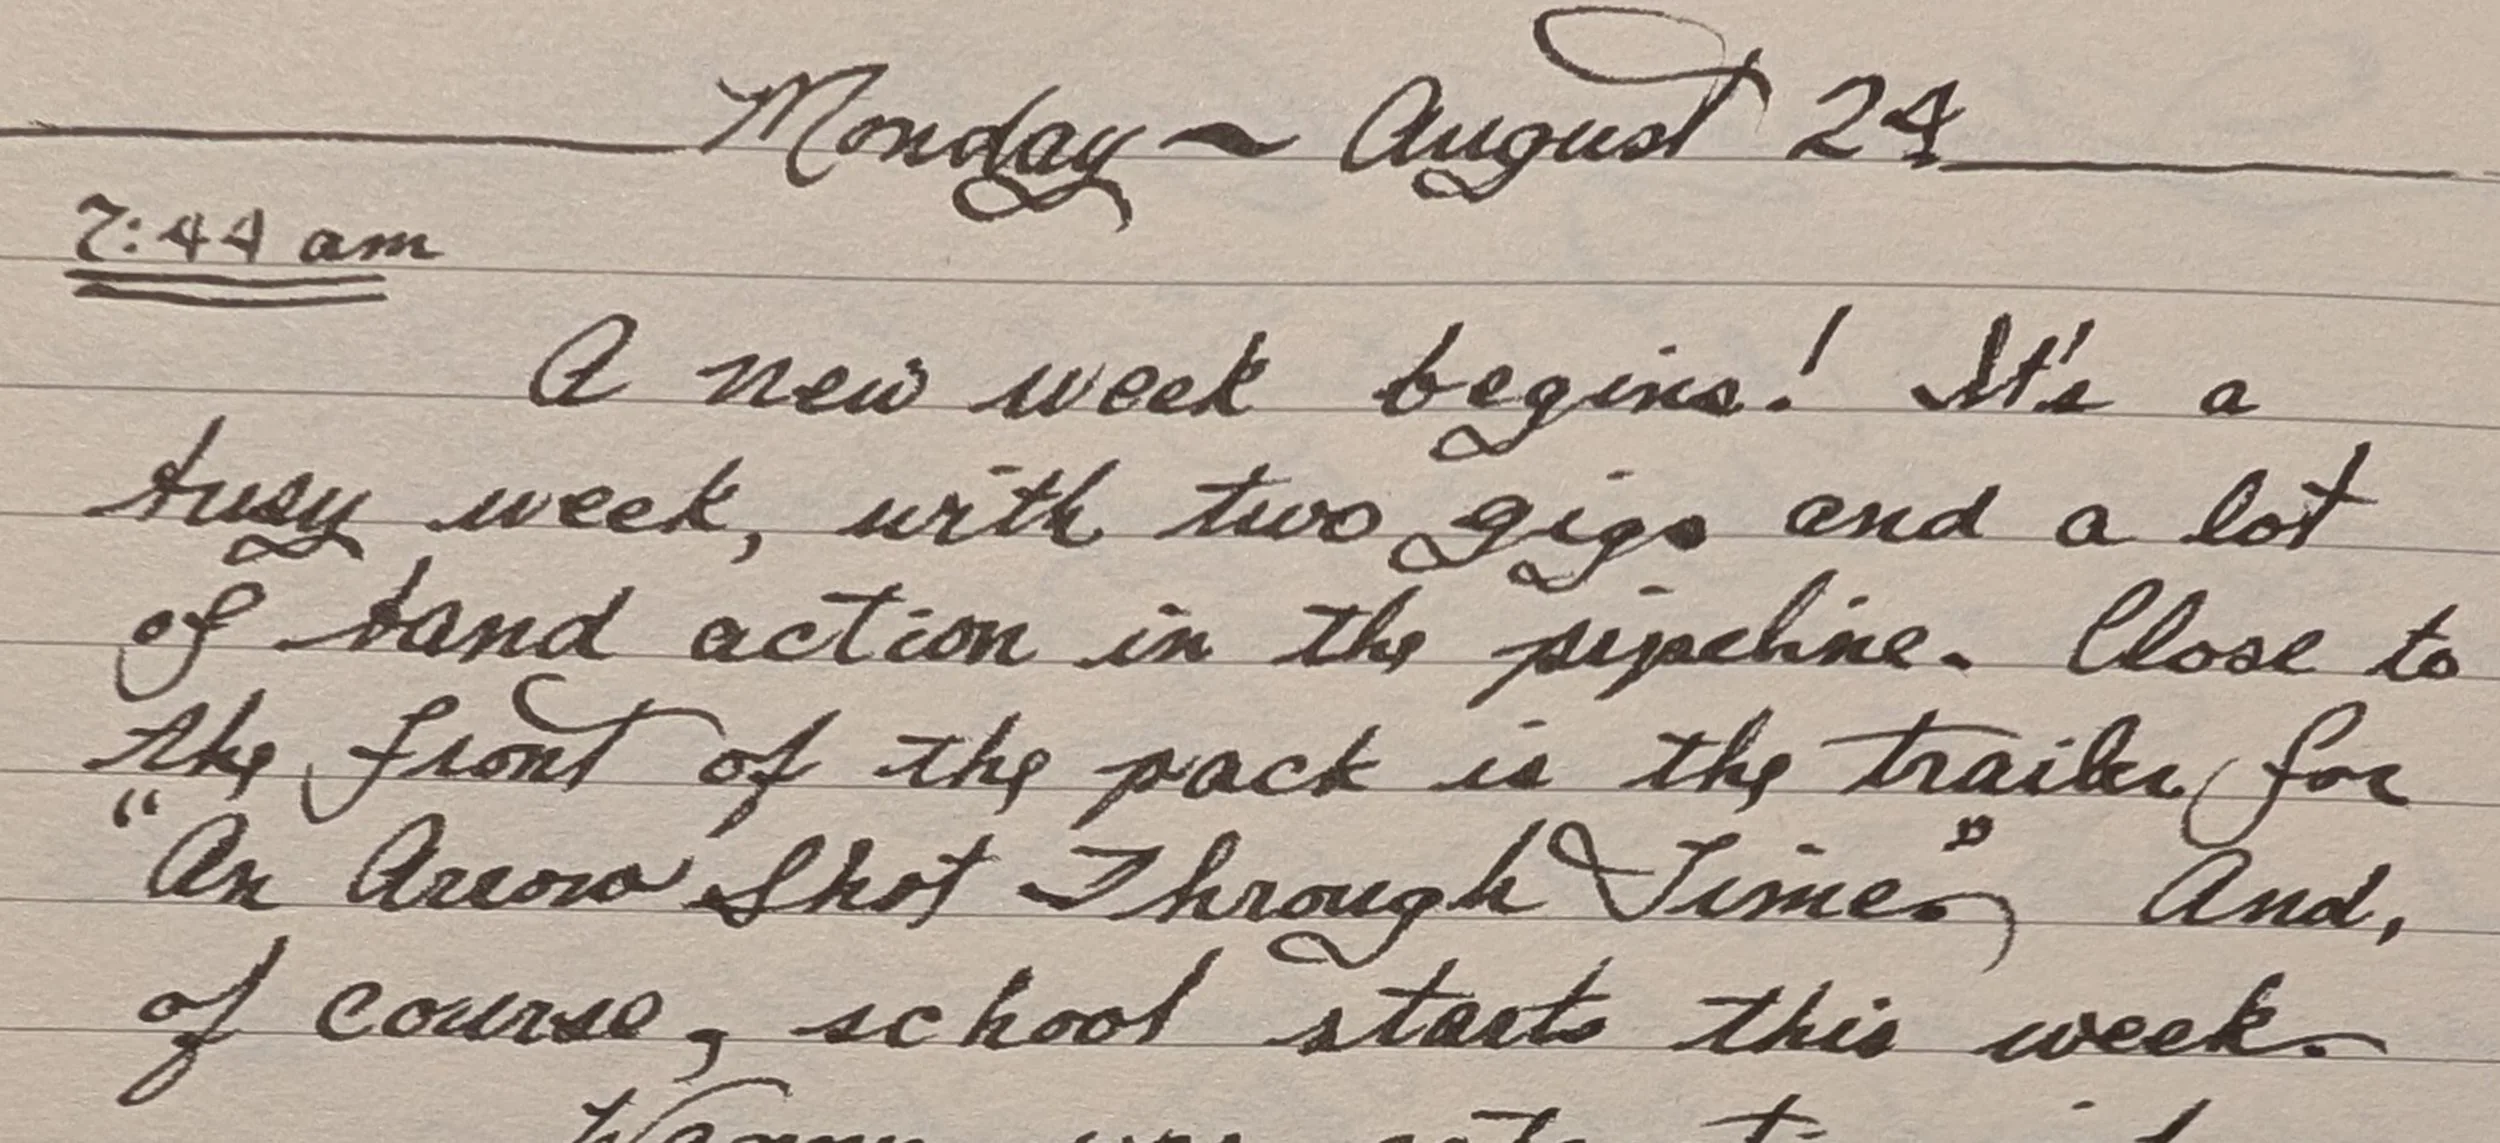 Monday ~ August 24
7:44 am
A new week begins! It's a
busy week, with two gigs and a lot
of band action in the pipeline. Close to
the front of the pack is the trailer for
"An Arrow Shot Through Time." And,
of course, school starts this week.